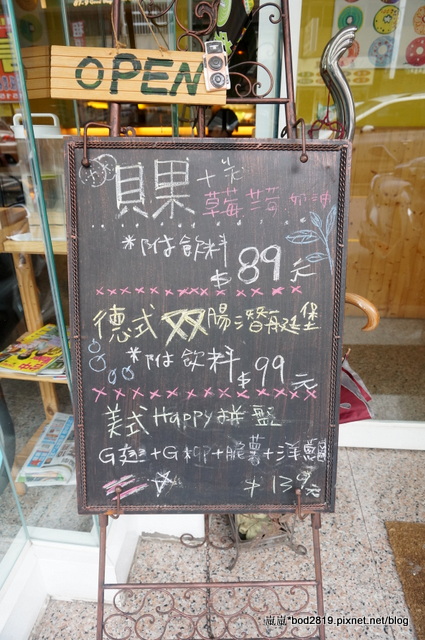 OPEN
貝果+米
草莓 + 奶油
*附飲料
$89元
德式双腸潛艇堡
*附飲料 $99元
美式Happy拼盤
G翅+G柳+脆薯+洋蔥圈
$139元
嵐嵐*bod2819.pixnet.net/blog